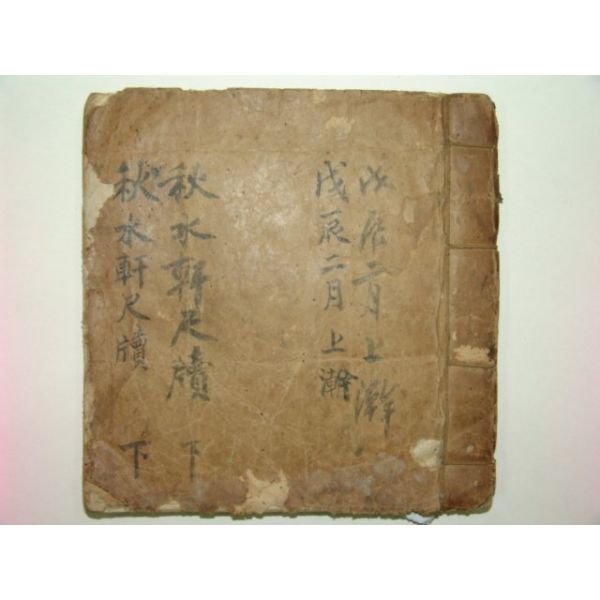 戊辰二月上澣
戊辰二月上澣
秋水軒尺牘 下
秋水軒尺牘 下